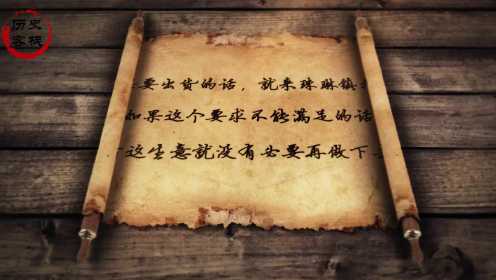 历史
客栈
要出货的话，就来珠琳镇
如果这个要求不能满足的话
这生意就没有必要再做下